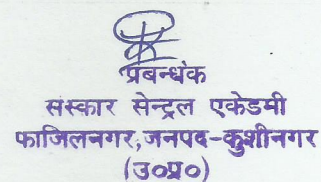 प्रबन्धंक
सस्कार सेन्ट्रल एकेडमी
फाजिलनगर,जनपद-कुशीनगर
(उ०प्र०)